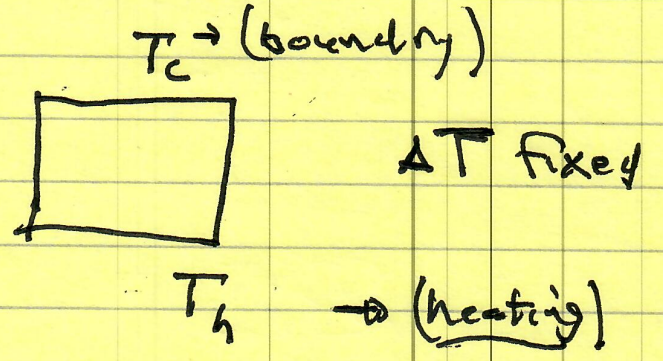 Tc → (boundry)
ΔT fixed
Th → (heating)